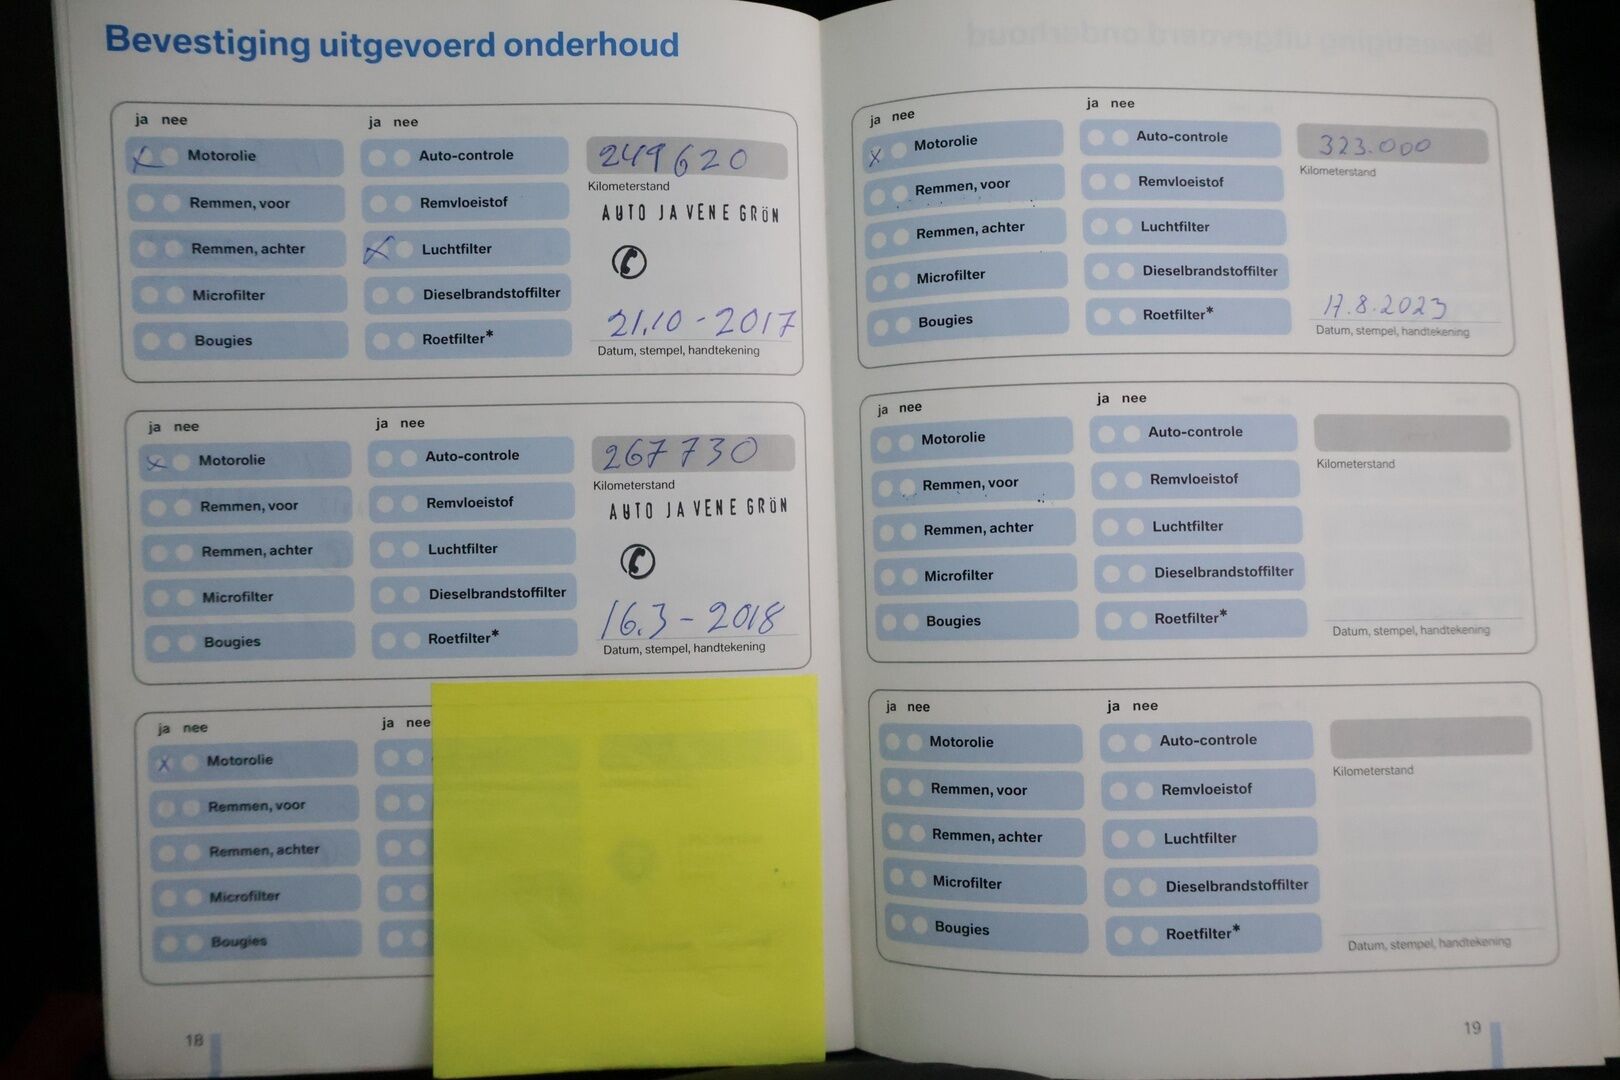 Bevestiging uitgevoerd onderhoud
ja nee
ja nee
Motorolie
Auto-controle
249620
Remmen, voor
Remvloeistof
Kilometerstand
AUTO JA VENE GRÖN
Remmen, achter
Luchtfilter
Microfilter
Dieselbrandstoffilter
21.10 - 2017
Bougies
Roetfilter*
Datum, stempel, handtekening
ja nee
ja nee
Motorolie
Auto-controle
267730
Remmen, voor
Remvloeistof
Kilometerstand
AUTO JA VENE GRÖN
Remmen, achter
Luchtfilter
Microfilter
Dieselbrandstoffilter
16.3 - 2018
Bougies
Roetfilter*
Datum, stempel, handtekening
ja nee
ja nee
Motorolie
Remmen, voor
Remmen, achter
Microfilter
Bougies
18
ja nee
ja nee
Motorolie
Auto-controle
323.000
Remmen, voor
Remvloeistof
Kilometerstand
Remmen, achter
Luchtfilter
Microfilter
Dieselbrandstoffilter
17.8.2023
Bougies
Roetfilter*
Datum, stempel, handtekening
ja nee
ja nee
Motorolie
Auto-controle
Kilometerstand
Remmen, voor
Remvloeistof
Remmen, achter
Luchtfilter
Microfilter
Dieselbrandstoffilter
Bougies
Roetfilter*
Datum, stempel, handtekening
ja nee
ja nee
Motorolie
Auto-controle
Kilometerstand
Remmen, voor
Remvloeistof
Remmen, achter
Luchtfilter
Microfilter
Dieselbrandstoffilter
Bougies
Roetfilter*
Datum, stempel, handtekening
19